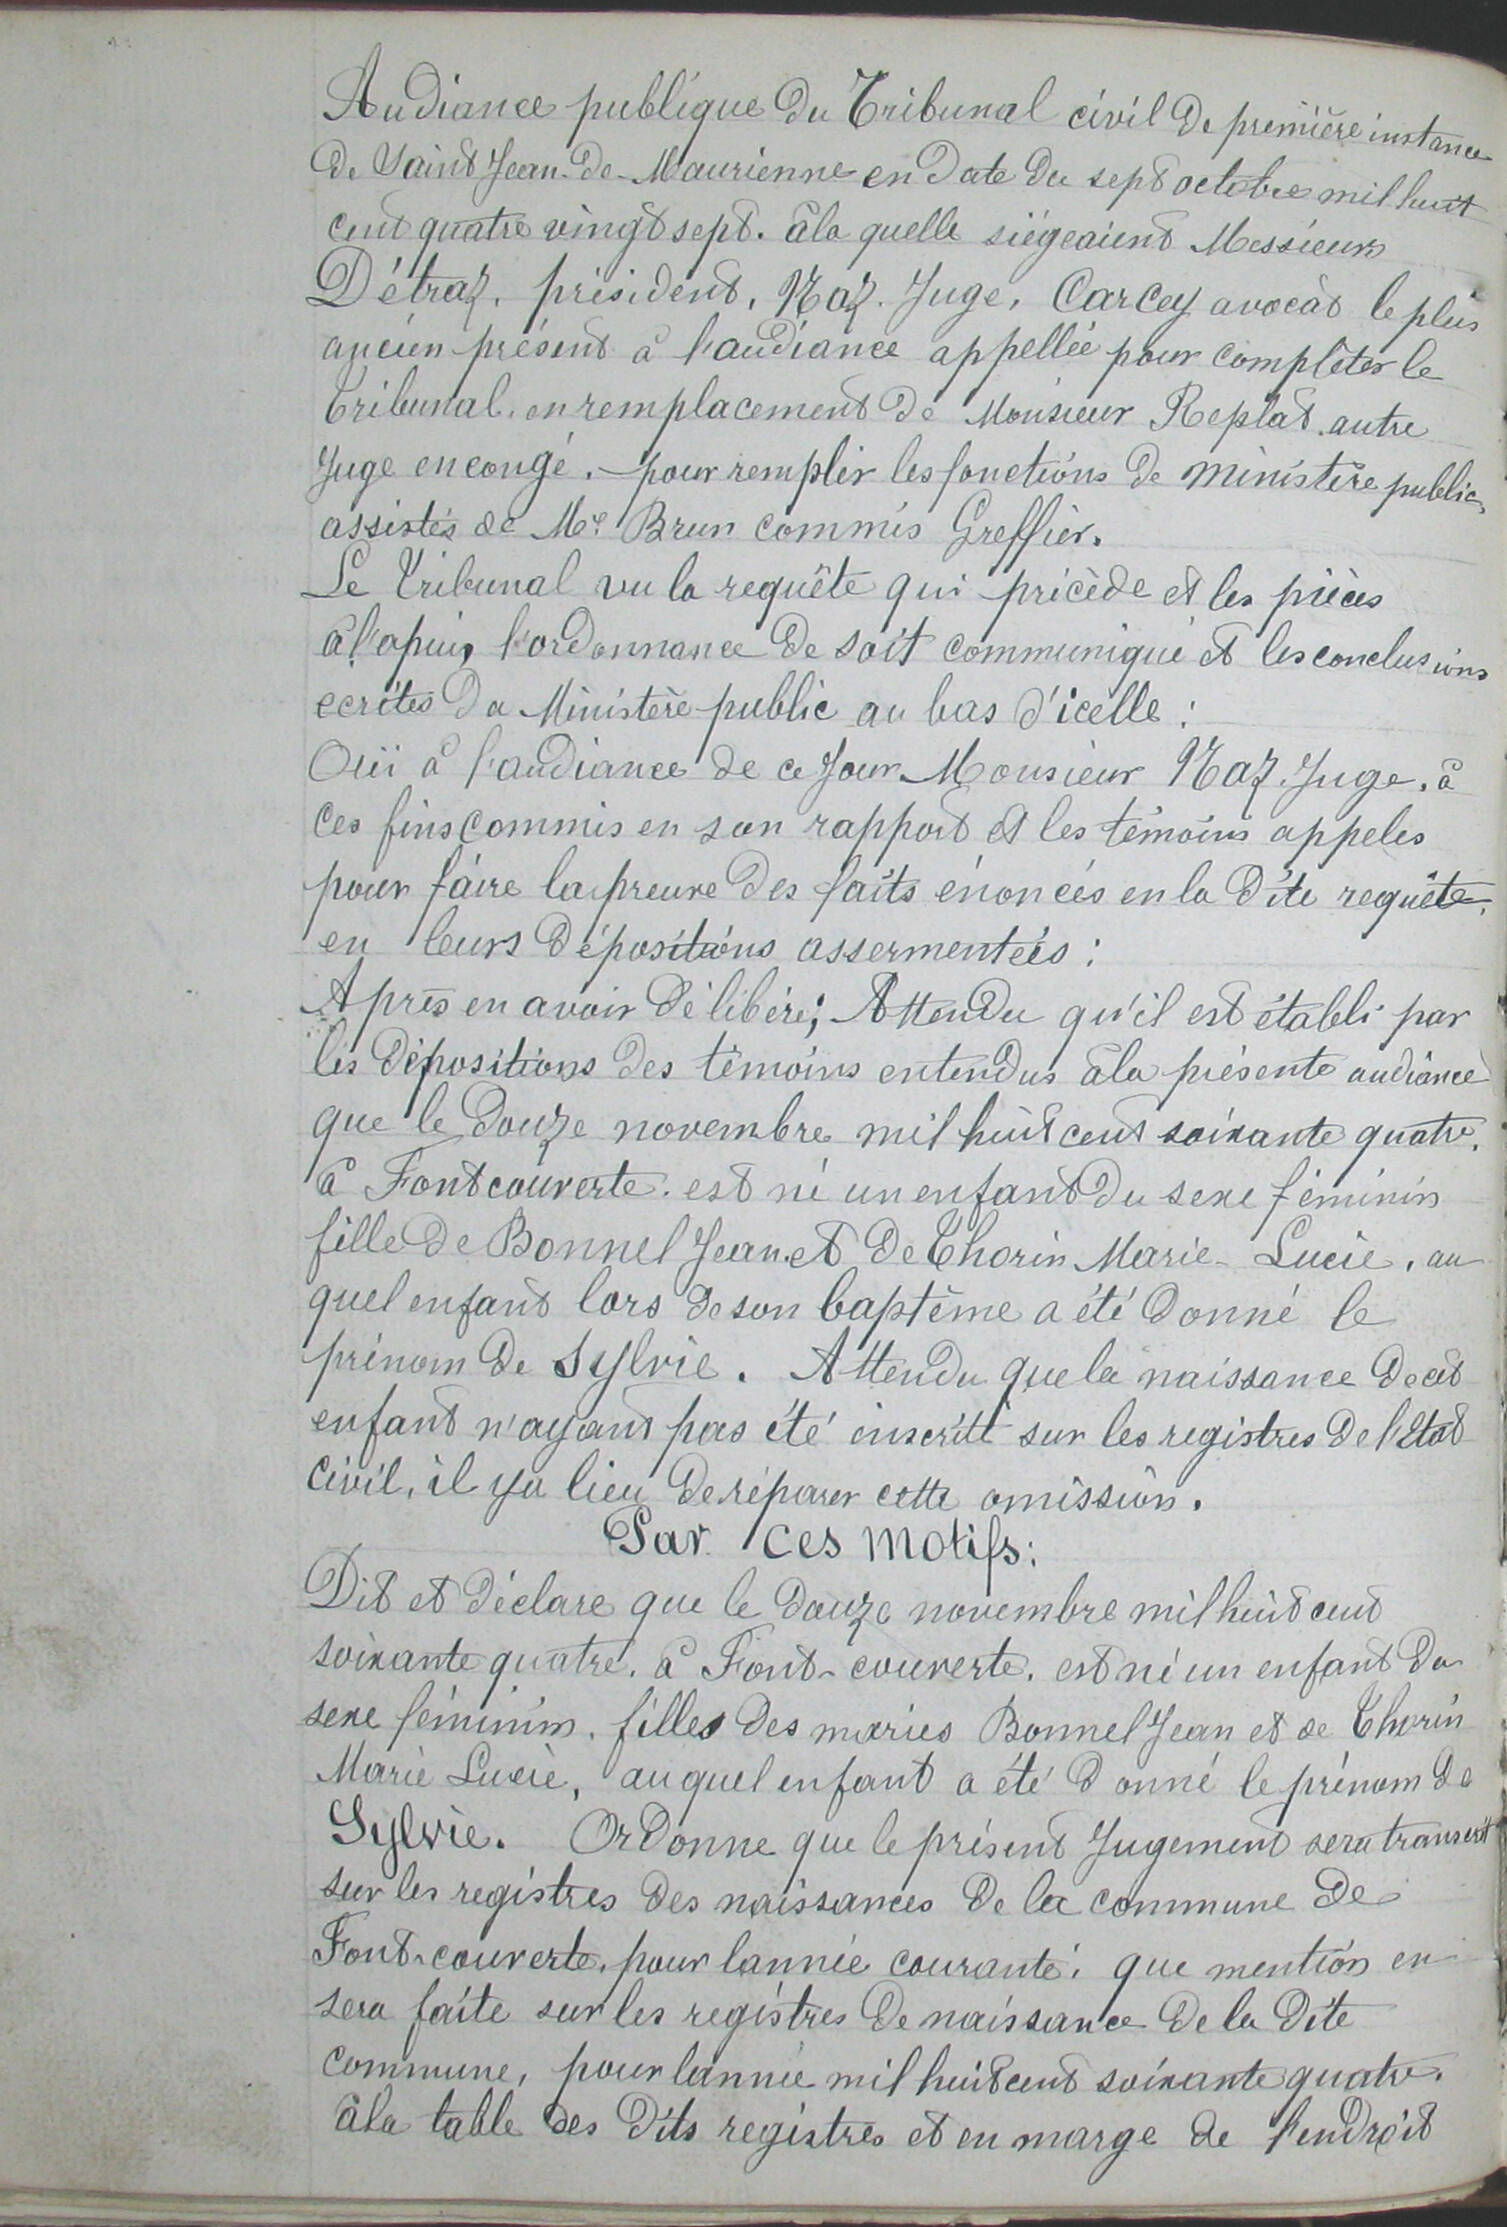 Audiance publique du Tribunal civil de première instance
de Saint Jean-de-Maurienne en date du sept octobre mil huit
cent quatre vingt sept. à la quelle siégeaient Messieurs
Détraz, président, Naz. Juge, Carcey avocat le plus
ancien présent à l'audiance appellée pour complèter le
Tribunal, en remplacement de Monsieur Replat autre
Juge en congé. pour remplir les fonctions de ministère public,
assistés de Me Brun commis Greffier.
Le Tribunal vu la requête qui précède et les pièces
à l'apui, l'ordonnance de soit communiqué et les conclusions
ecrites du Ministère public au bas d'icelle :
Ouï à l'audiance de ce Jour Monsieur Naz. Juge, à
ces fins commis en son rapport et les témoins appeles
pour faire la preuve des faits énoncés en la dite requête,
en leurs dépositions assermentées :
Après en avoir délibéré; Attendu qu'il est établi par
les dépositions des témoins entendus à la présente audiance
que le douze novembre mil huit cent soixante quatre,
à Fontcouverte. est né un enfant du sexe féminin
fille de Bonnel Jean. et de Thorin Marie-Lucie, au
quel enfant lors de son baptême a été donné le
prénom de Sylvie. Attendu que la naissance de cet
enfant n'ayant pas été inscritt sur les registres de l'Etat
civil, il y a lieu de réparer cette omission.
Par ces motifs:
Dit et déclare que le douze novembre mil huit cent
soixante quatre, à Font-couverte, est né un enfant du
sexe féminin, filles des mariés Bonnel Jean et de Thorin
Marie Lucie, au quel enfant a été donné le prénom de
Sylvie. Ordonne que le présent Jugement sera transcrit
sur les registres des naissances de la commune de
Font-couverte, pour lannée courante, que mention en
sera faite sur les registres de naissance de la dite
commune, pour lannée mil huit cent soixante quatre.
à la table des dits registres et en marge de l'endroit